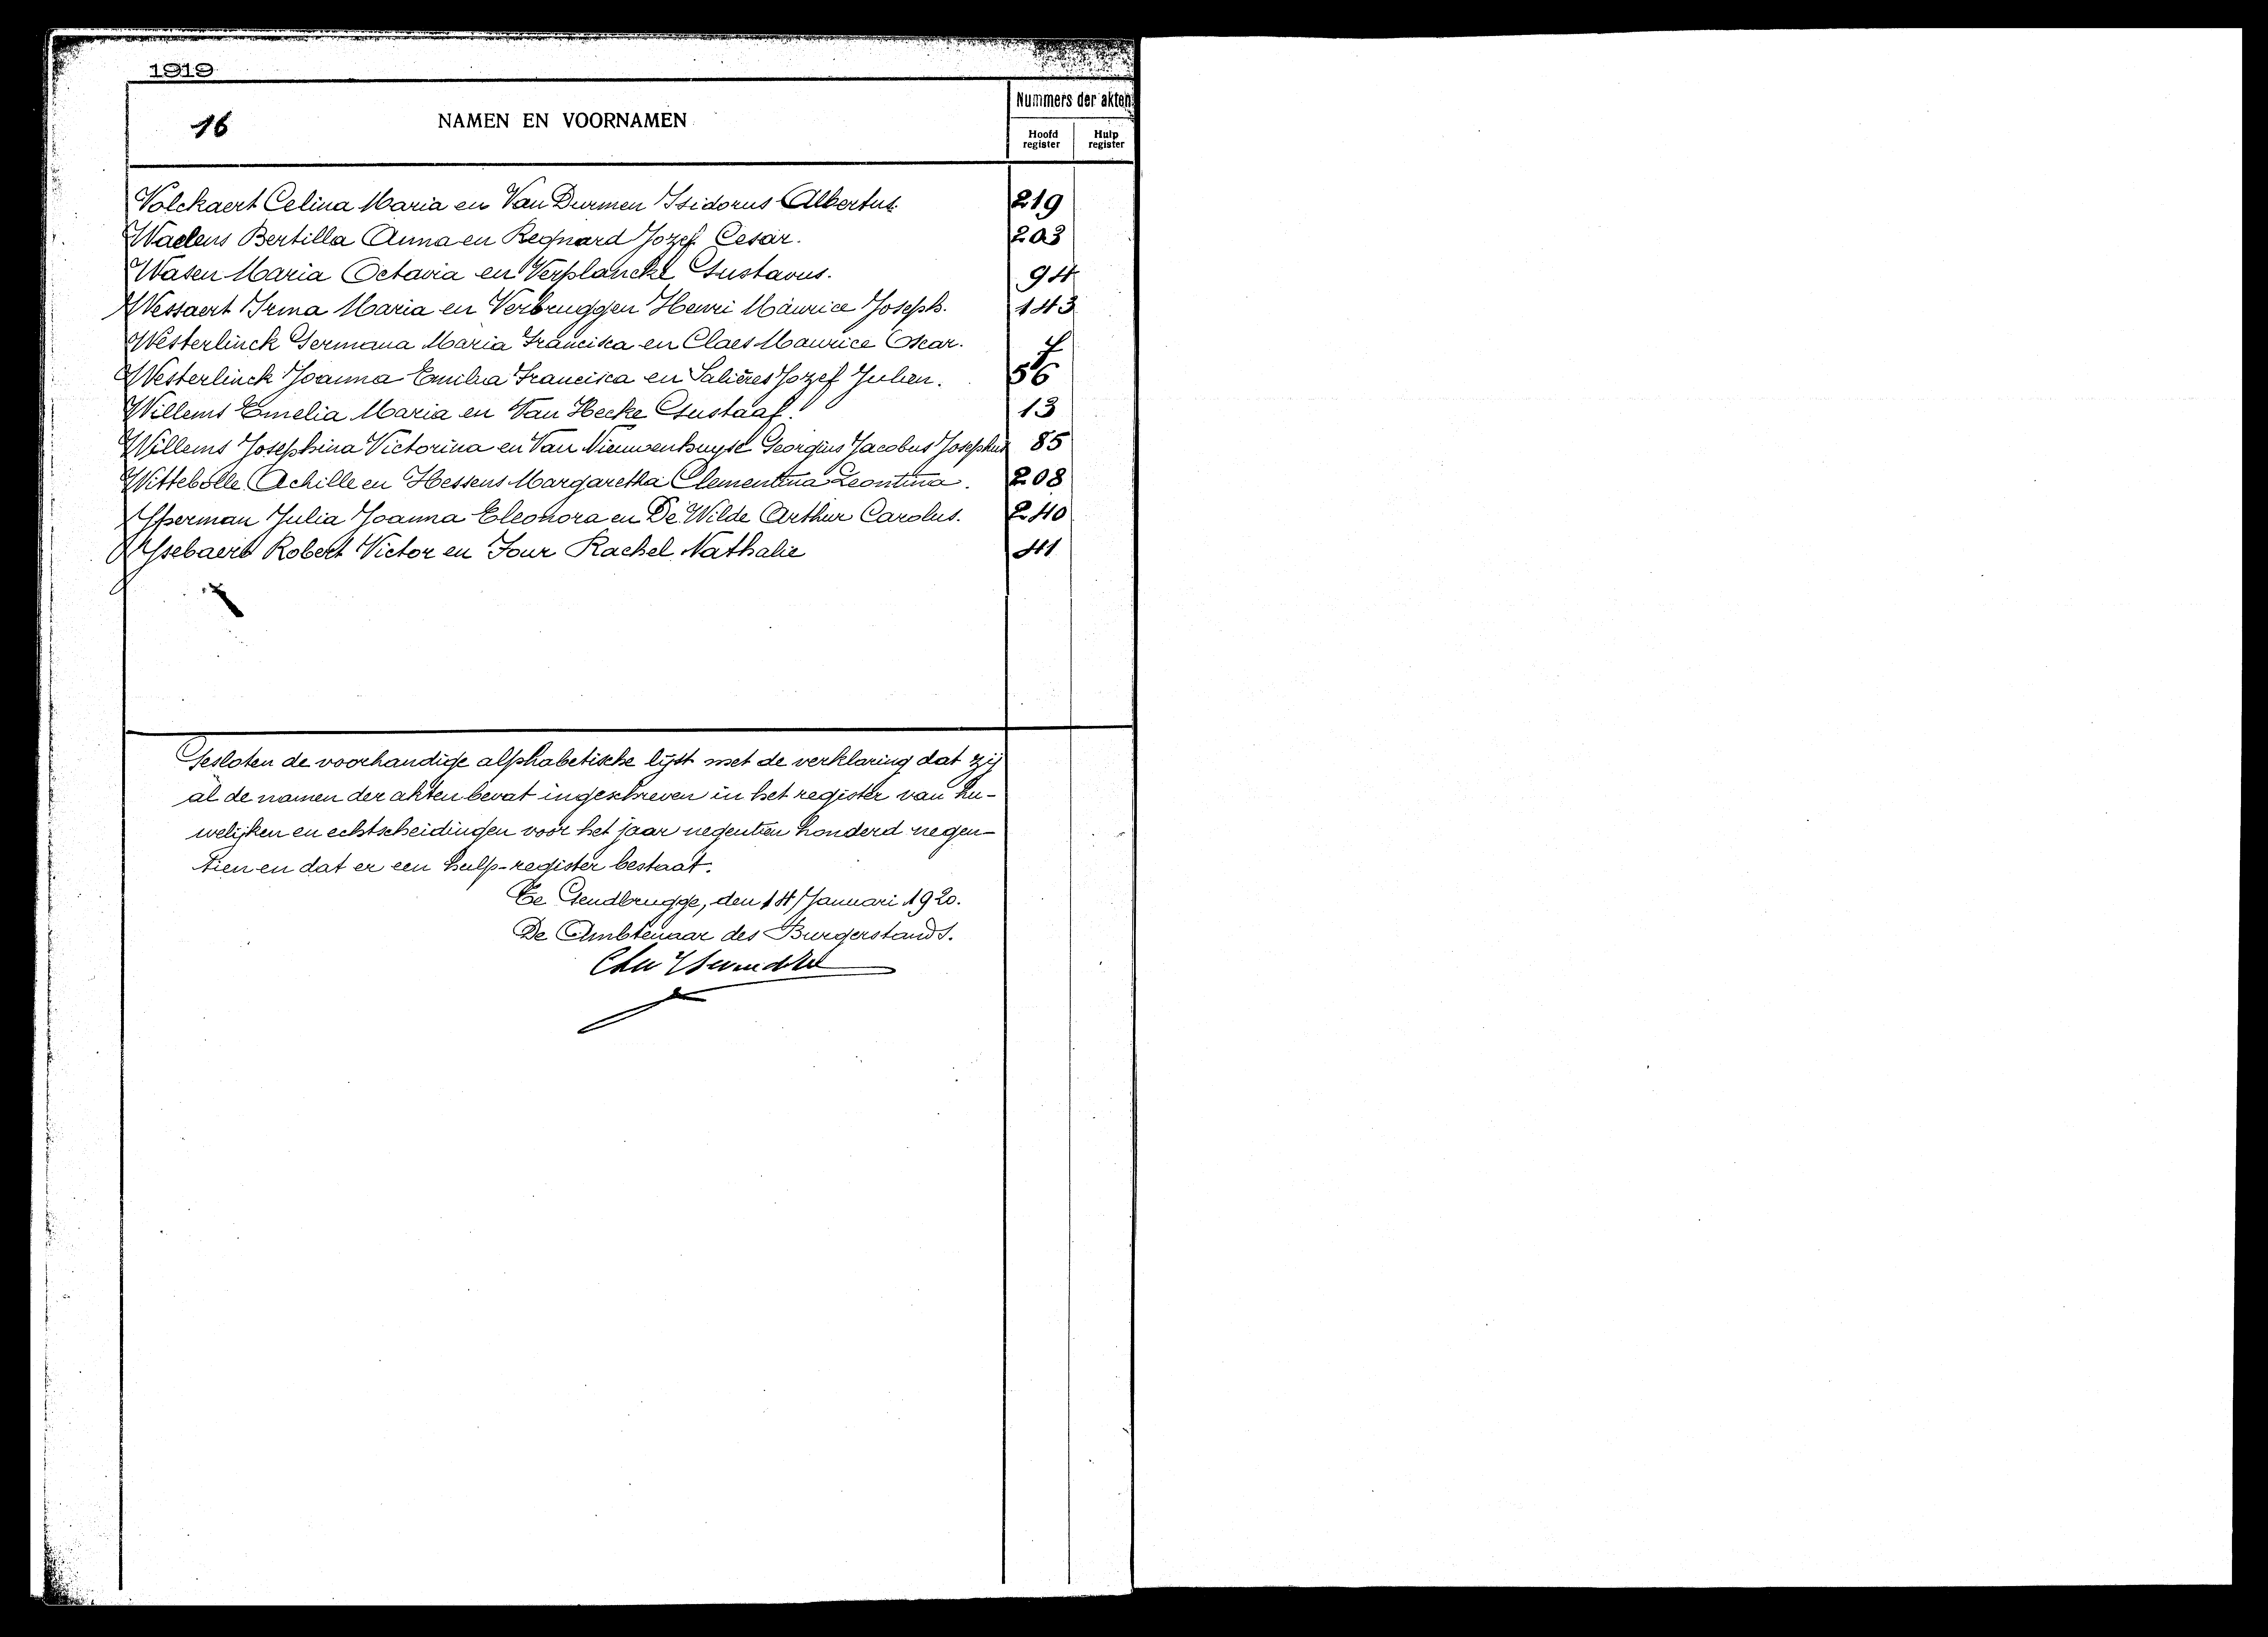 1919
16
NAMEN EN VOORNAMEN
Nummers der akten
Hoofd register
Hulp register
Volckaert Celina Maria en Van Durmen Isidorus Albertus 219
Waelens Bertilla Anna en Regnard Jozef Cesar. 203
Wasen Maria Octavia en Verplancke Gustavus. 94
Wessaert Irma Maria en Verbruggen Henri Maurice Joseph. 143
Westerlinck Germana Maria Francisca en Claes Maurice Oscar. 7
Westerlinck Joanna Emilia Francisca en Salières Jozef Julien. 56
Willems Emelia Maria en Van Hecke Gustaaf. 13
Willems Josephina Victorina en Van Nieuwenhuyse Georgius Jacobus Josephus 85
Wittebolle Achille en Hessens Margaretha Clementina Leontina. 208
Yperman Julia Joanna Eleonora en De Wilde Arthur Carolus. 240
Ysebaert Robert Victor en Four Rachel Nathalie 41
Gesloten de voorhandige alphabetische lijst met de verklaring dat zij
al de namen der akten bevat ingeschreven in het register van hu-
welijken en echtscheidingen voor het jaar negentien honderd negen-
tien en dat er een hulp-register bestaat.
Te Gendbrugge, den 14 Januari 1920.
De Ambtenaar des Burgerstands.